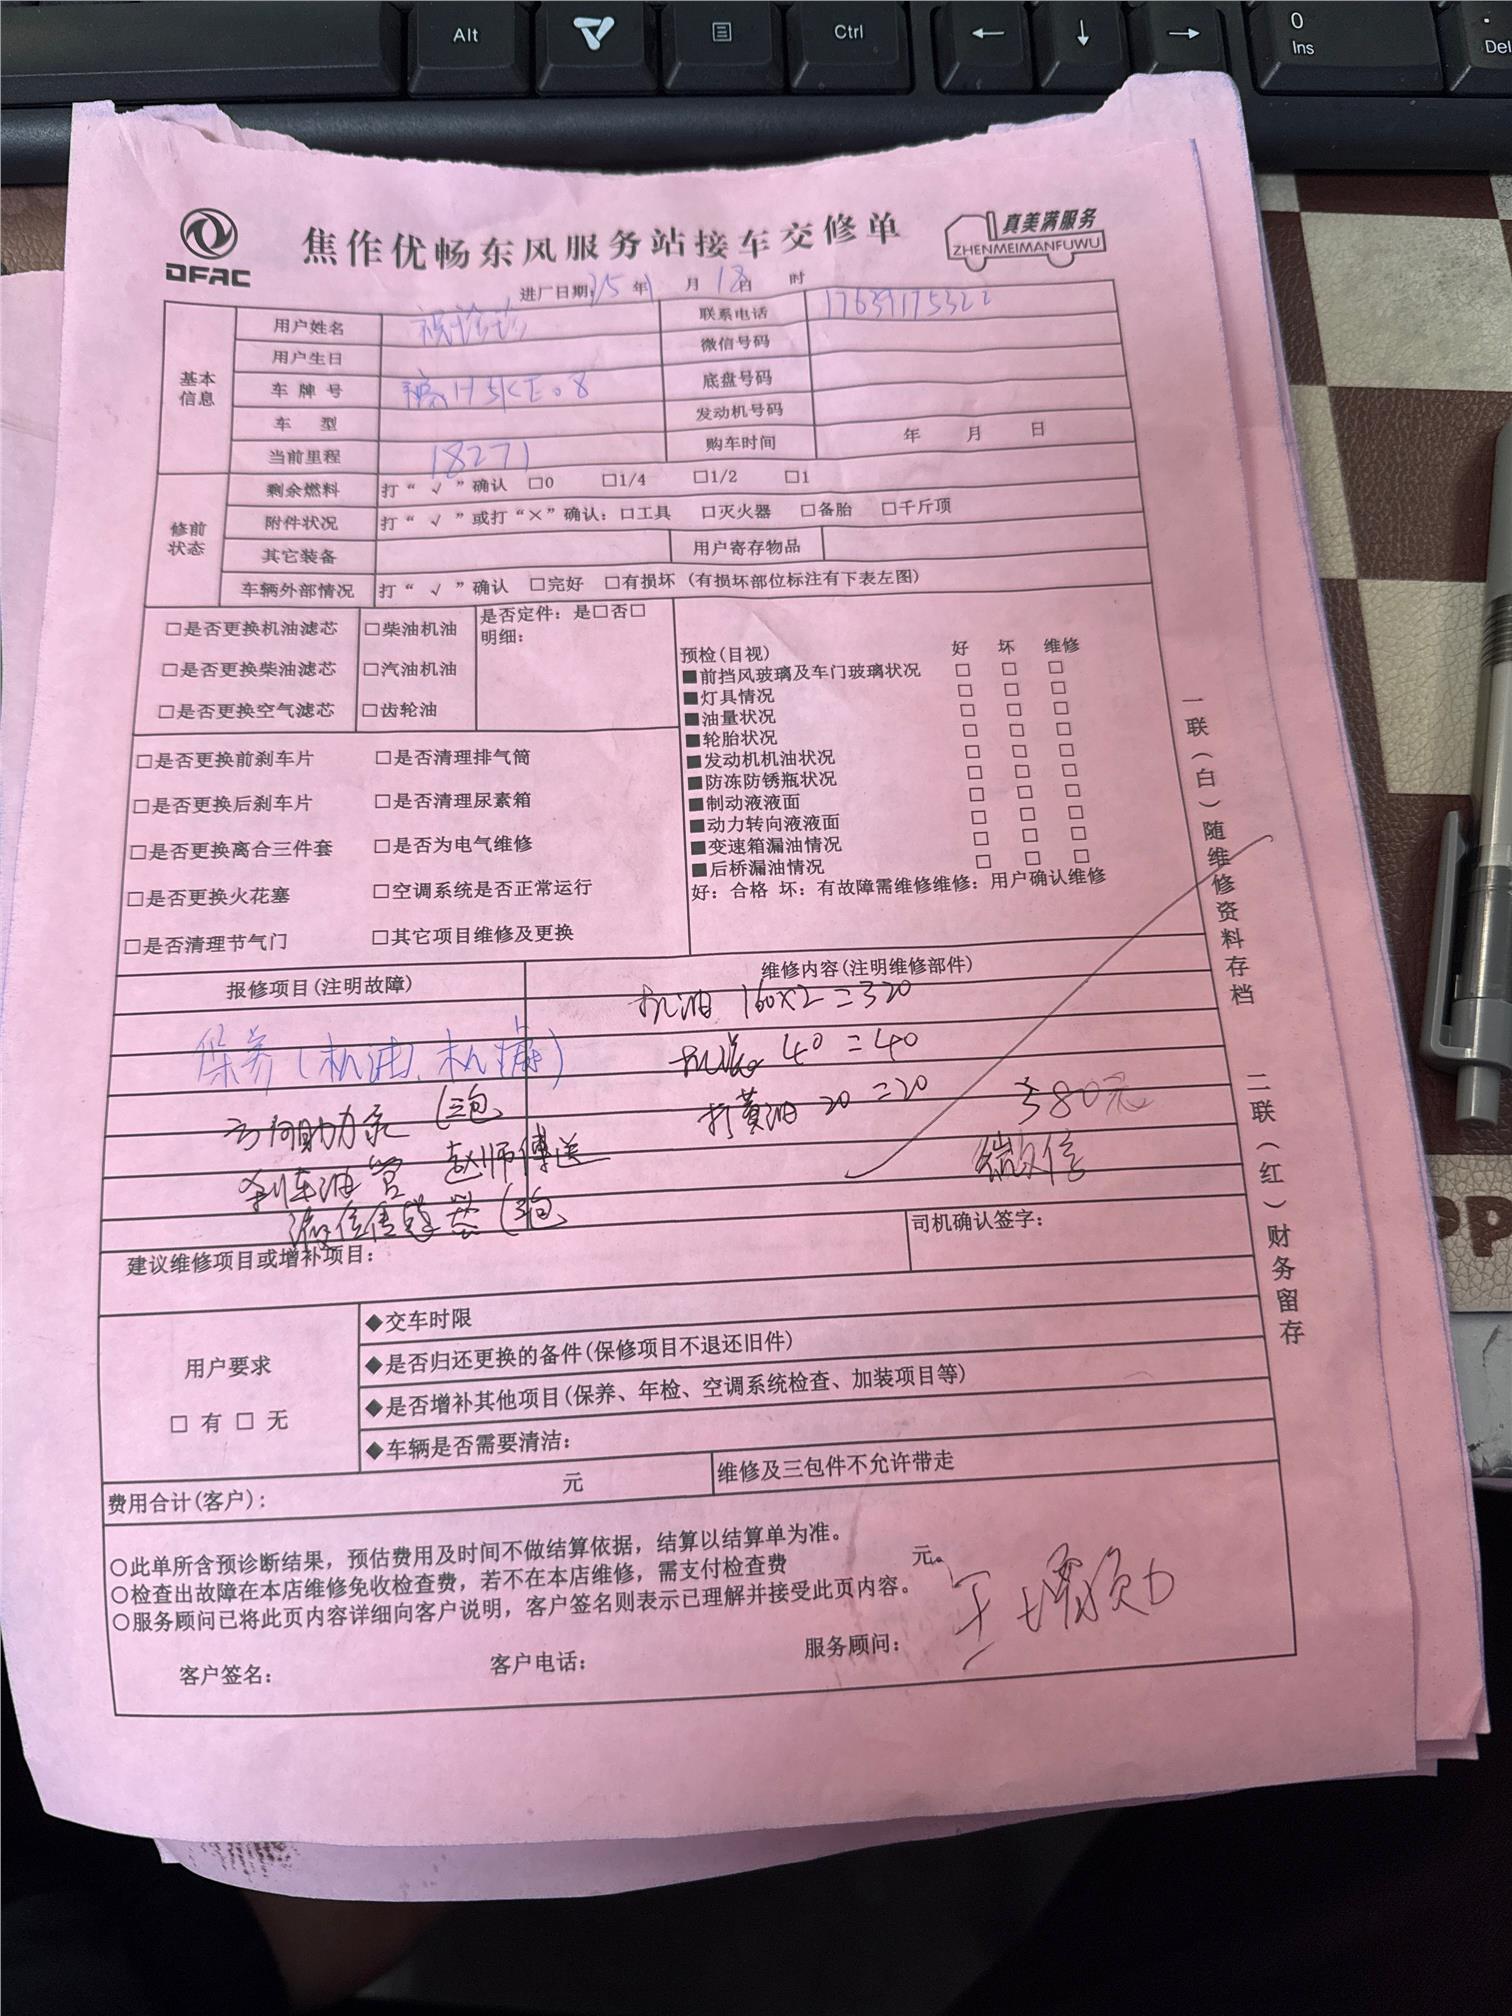 Alt
Ctrl
←
↓
→
0
Ins
Del
DFAC
焦作优畅东风服务站接车交修单
真美满服务
ZHENMEIMANFUWU
进厂日期: 25 年 1 月 18 日 时
基本信息
用户姓名
联系电话 17639175322
用户生日
微信号码
车牌号
底盘号码
车 型
发动机号码
当前里程 18271
购车时间 年 月 日
修前状态
剩余燃料 打“ √ ”确认 □0 □1/4 □1/2 □1
附件状况 打“ √ ”或打“×”确认: □工具 □灭火器 □备胎 □千斤顶
其它装备
用户寄存物品
车辆外部情况 打“ √ ”确认 □完好 □有损坏 (有损坏部位标注有下表左图)
□是否更换机油滤芯 □柴油机油
□是否更换柴油滤芯 □汽油机油
□是否更换空气滤芯 □齿轮油
是否定件: 是□否□
明细:
□是否更换前刹车片 □是否清理排气筒
□是否更换后刹车片 □是否清理尿素箱
□是否更换离合三件套 □是否为电气维修
□是否更换火花塞 □空调系统是否正常运行
□是否清理节气门 □其它项目维修及更换
预检(目视) 好 坏 维修
■前挡风玻璃及车门玻璃状况 □ □ □
■灯具情况 □ □ □
■油量状况 □ □ □
■轮胎状况 □ □ □
■发动机机油状况 □ □ □
■防冻防锈瓶状况 □ □ □
■制动液液面 □ □ □
■动力转向液液面 □ □ □
■变速箱漏油情况 □ □ □
■后桥漏油情况 □ □ □
好: 合格 坏: 有故障需维修维修: 用户确认维修
报修项目(注明故障)
维修内容(注明维修部件)
保养(机油、机滤)
方向助力泵 (三包
刹车油管 赵师傅送
(三包
机油 160×2=320
机滤 40=40
打黄油 20=20
380元
微信
建议维修项目或增补项目:
司机确认签字:
用户要求
□ 有 □ 无
◆交车时限
◆是否归还更换的备件(保修项目不退还旧件)
◆是否增补其他项目(保养、年检、空调系统检查、加装项目等)
◆车辆是否需要清洁:
费用合计(客户): 元
维修及三包件不允许带走
○此单所含预诊断结果，预估费用及时间不做结算依据，结算以结算单为准。
○检查出故障在本店维修免收检查费，若不在本店维修，需支付检查费 元。
○服务顾问已将此页内容详细向客户说明，客户签名则表示已理解并接受此页内容。
客户签名:
客户电话:
服务顾问:
一联(白)随维修资料存档
二联(红)财务留存